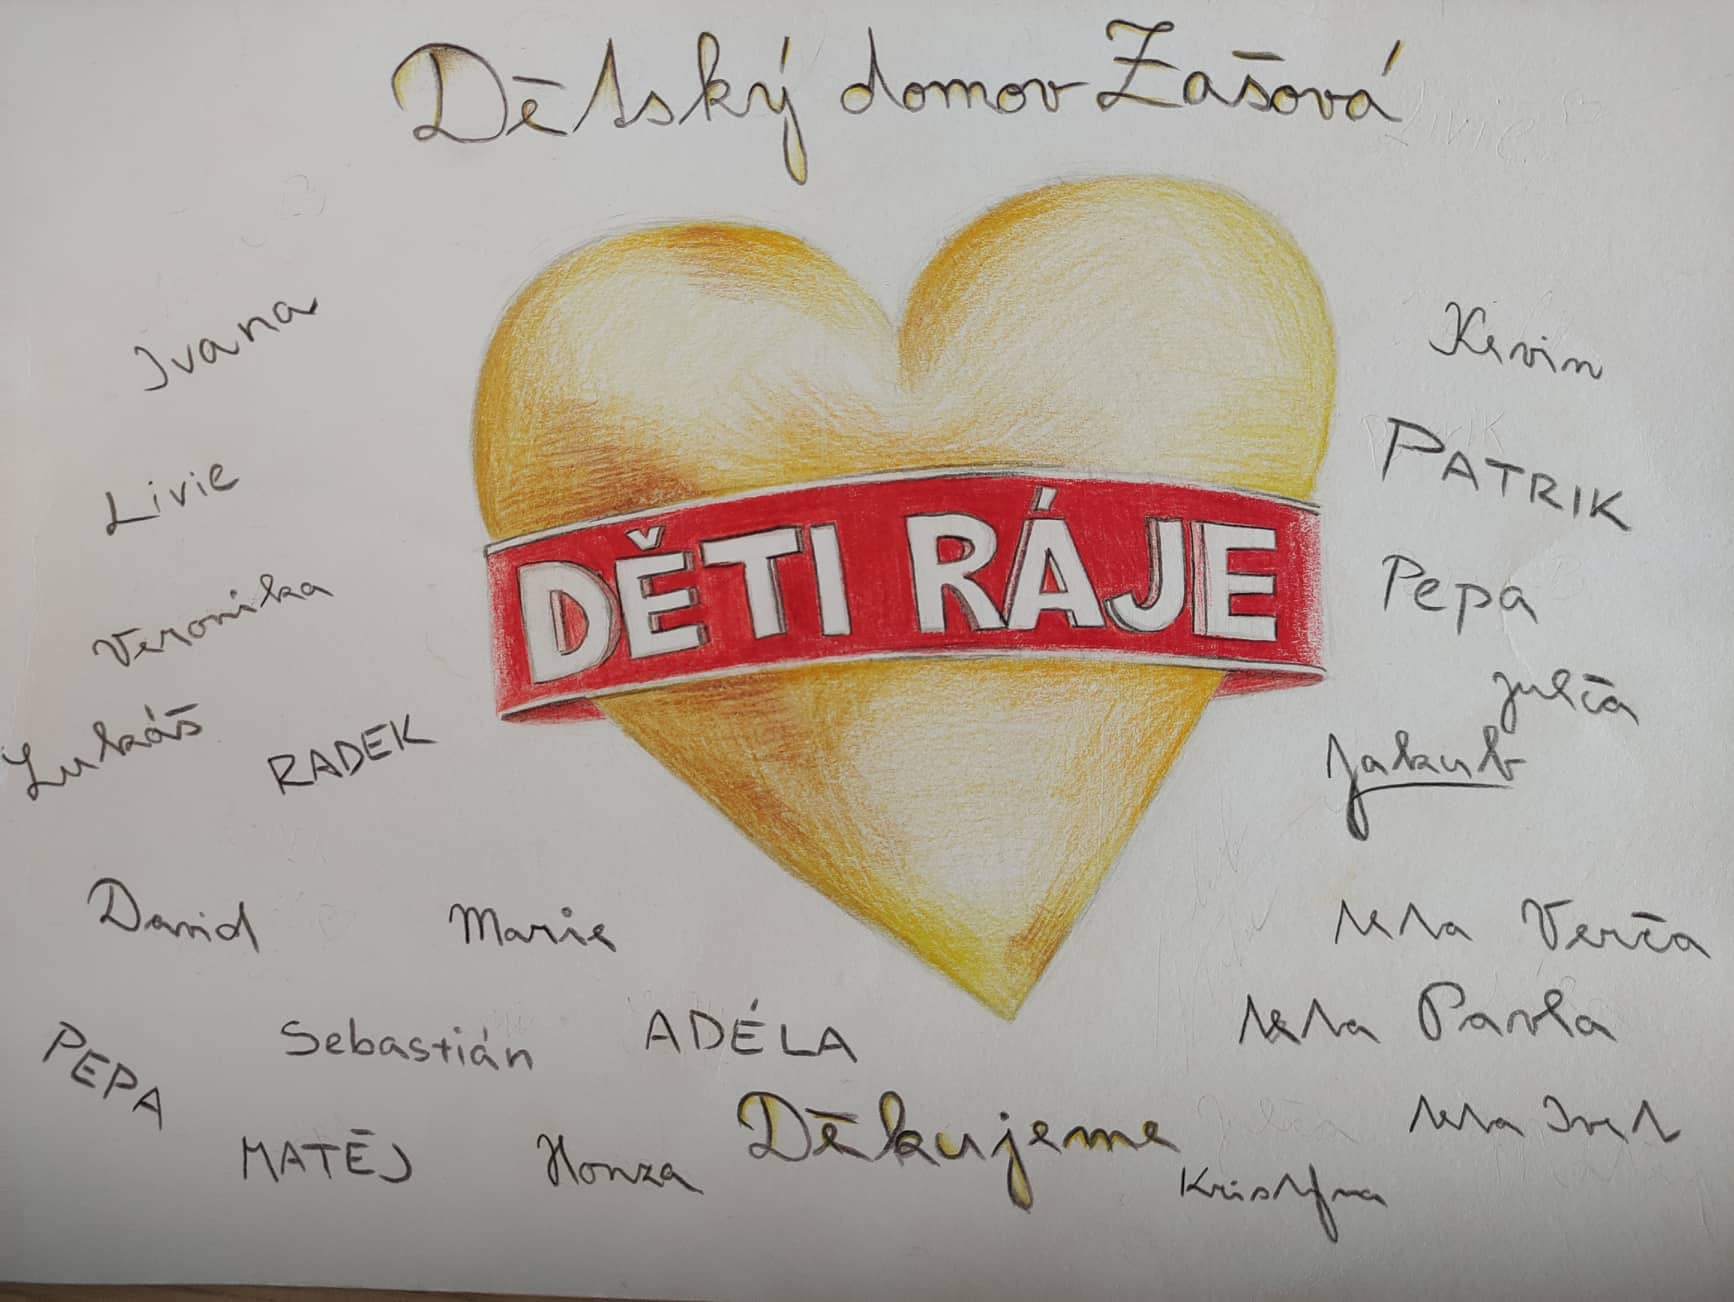 Dětský domov Zašová
Ivana
Kevin
PATRIK
Livie
DĚTI RÁJE
Pepa
Veronika
Julča
Lukáš
RADEK
Jakub
David
Marie
teta Verča
Sebastián
ADÉLA
teta Pavla
PEPA
Děkujeme
teta Ivet
MATĚJ
Honza
Kristýna